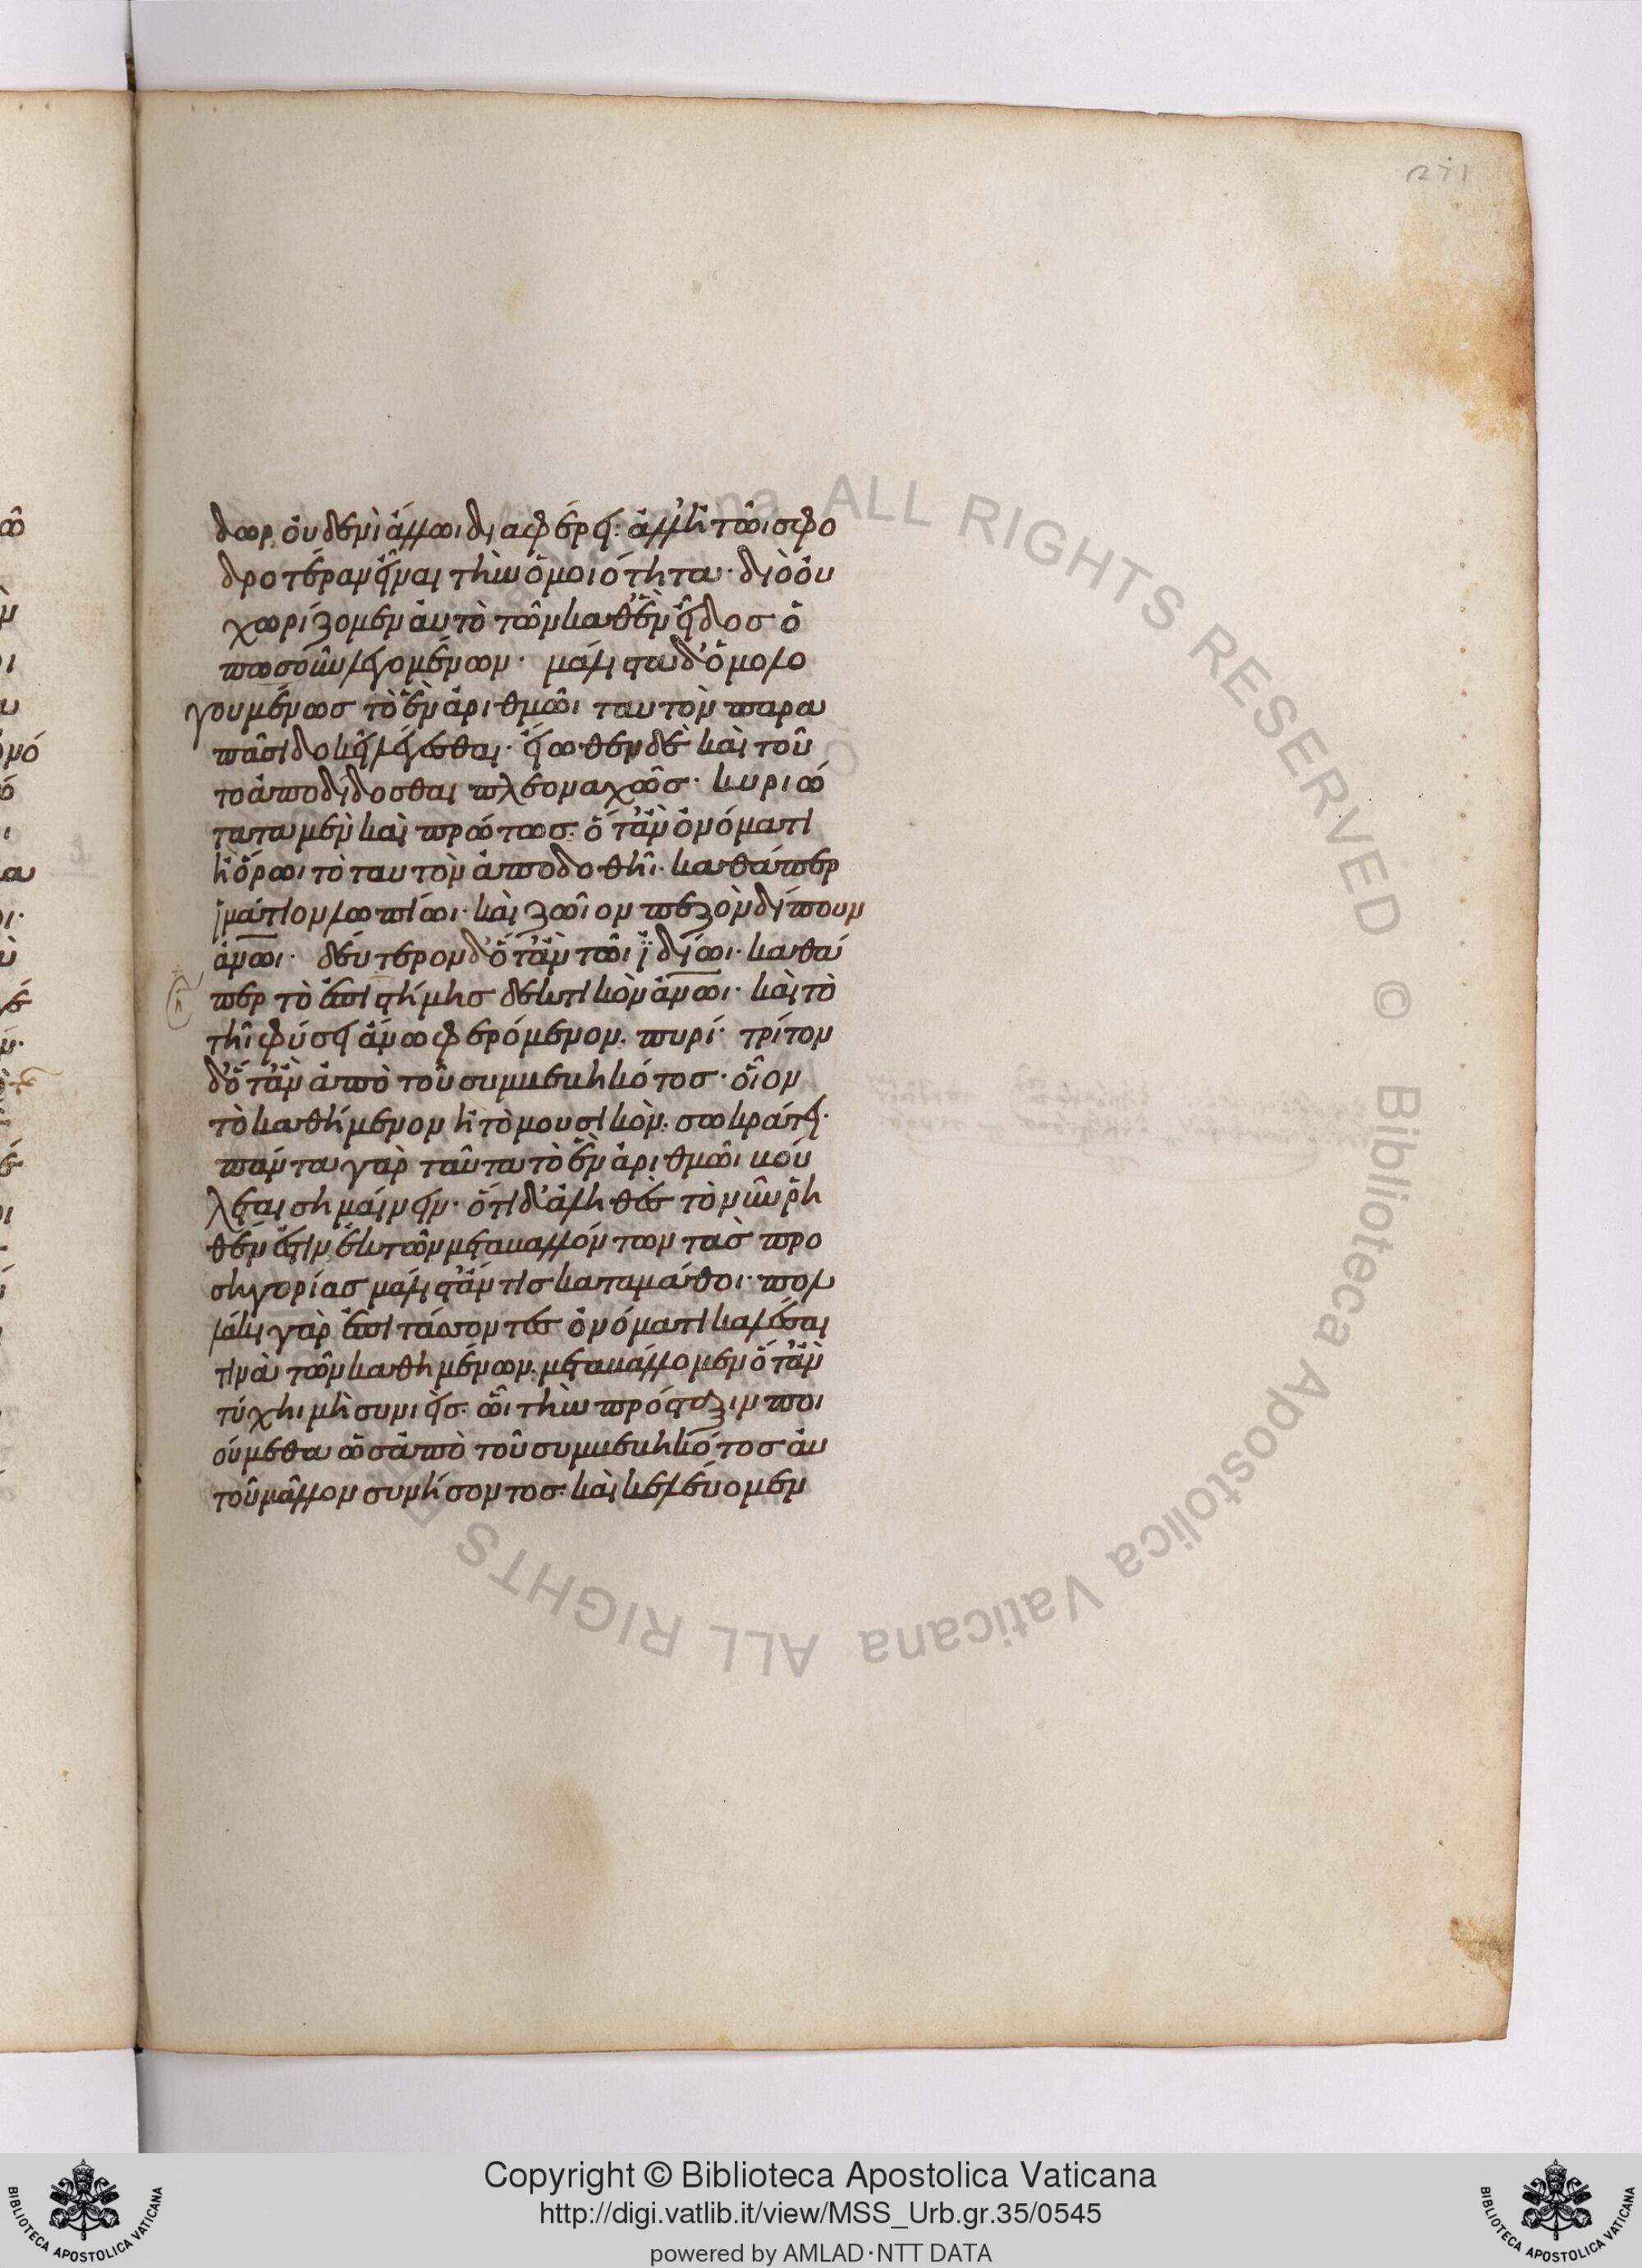 δωρ οὐδενὶ ἄλλωι διαφέρει· ἀλλ' ἢ τῶι σφο
δροτέραν εἶναι τὴν ὁμοιότητα· διὸ οὐ
χωρίζομεν αὐτὸ τῶν καθ' ἓν εἶδος ὁ
πωσοῦν λεγομένων· μάλιστα δ' ὁμολο
γουμένως τὸ ἓν ἀριθμῶι ταυτὸν παρα
πᾶσι δοκεῖ λέγεσθαι· εἴωθεν δὲ καὶ τοῦ
το ἀποδίδοσθαι πλεοναχῶς· κυριώ
τατα μὲν καὶ πρώτως· ὅταν ὀνόματι
ἢ ὅρωι τὸ ταυτὸν ἀποδοθῆι· καθάπερ
ἱμάτιον λωπίωι· καὶ ζῶιον πεζὸν δίπουν
ἀνωι· δεύτερον δ' ὅταν τῶι ἰδίωι· καθά
περ τὸ ἐπιστήμης δεκτικὸν ἀνωι· καὶ τὸ
τῆι φύσει ἄνω φερόμενον πυρί· τρίτον
δ' ὅταν ἀπὸ τοῦ συμβεβηκότος· οἷον
τὸ καθήμενον ἢ τὸ μουσικὸν σωκράτει·
πάντα γὰρ ταῦτα τὸ ἓν ἀριθμῶι βού
λεται σημαίνειν· ὅτι δ' ἀληθὲς τὸ νῦν ῥη
θέν ἐστιν ἐκ τῶν μεταβαλλόντων τὰς προ
σηγορίας μάλιστ' ἄν τις καταμάθοι· πολ
λάκι γὰρ ἐπιτάσσοντες ὀνόματι καλέσαι
τινὰ τῶν καθημένων· μεταβάλλομεν ὅταν
τύχηι μὴ συνιεὶς· ὧι τὴν πρόσταξιν ποι
ούμεθα ὡς ἀπὸ τοῦ συμβεβηκότος αὐ
τοῦ μᾶλλον συνήσοντος· καὶ κελεύομεν
271
ALL RIGHTS RESERVED © Biblioteca Apostolica Vaticana ALL RIGHTS
Copyright © Biblioteca Apostolica Vaticana
http://digi.vatlib.it/view/MSS_Urb.gr.35/0545
powered by AMLAD·NTT DATA
BIBLIOTECA APOSTOLICA VATICANA
BIBLIOTECA APOSTOLICA VATICANA